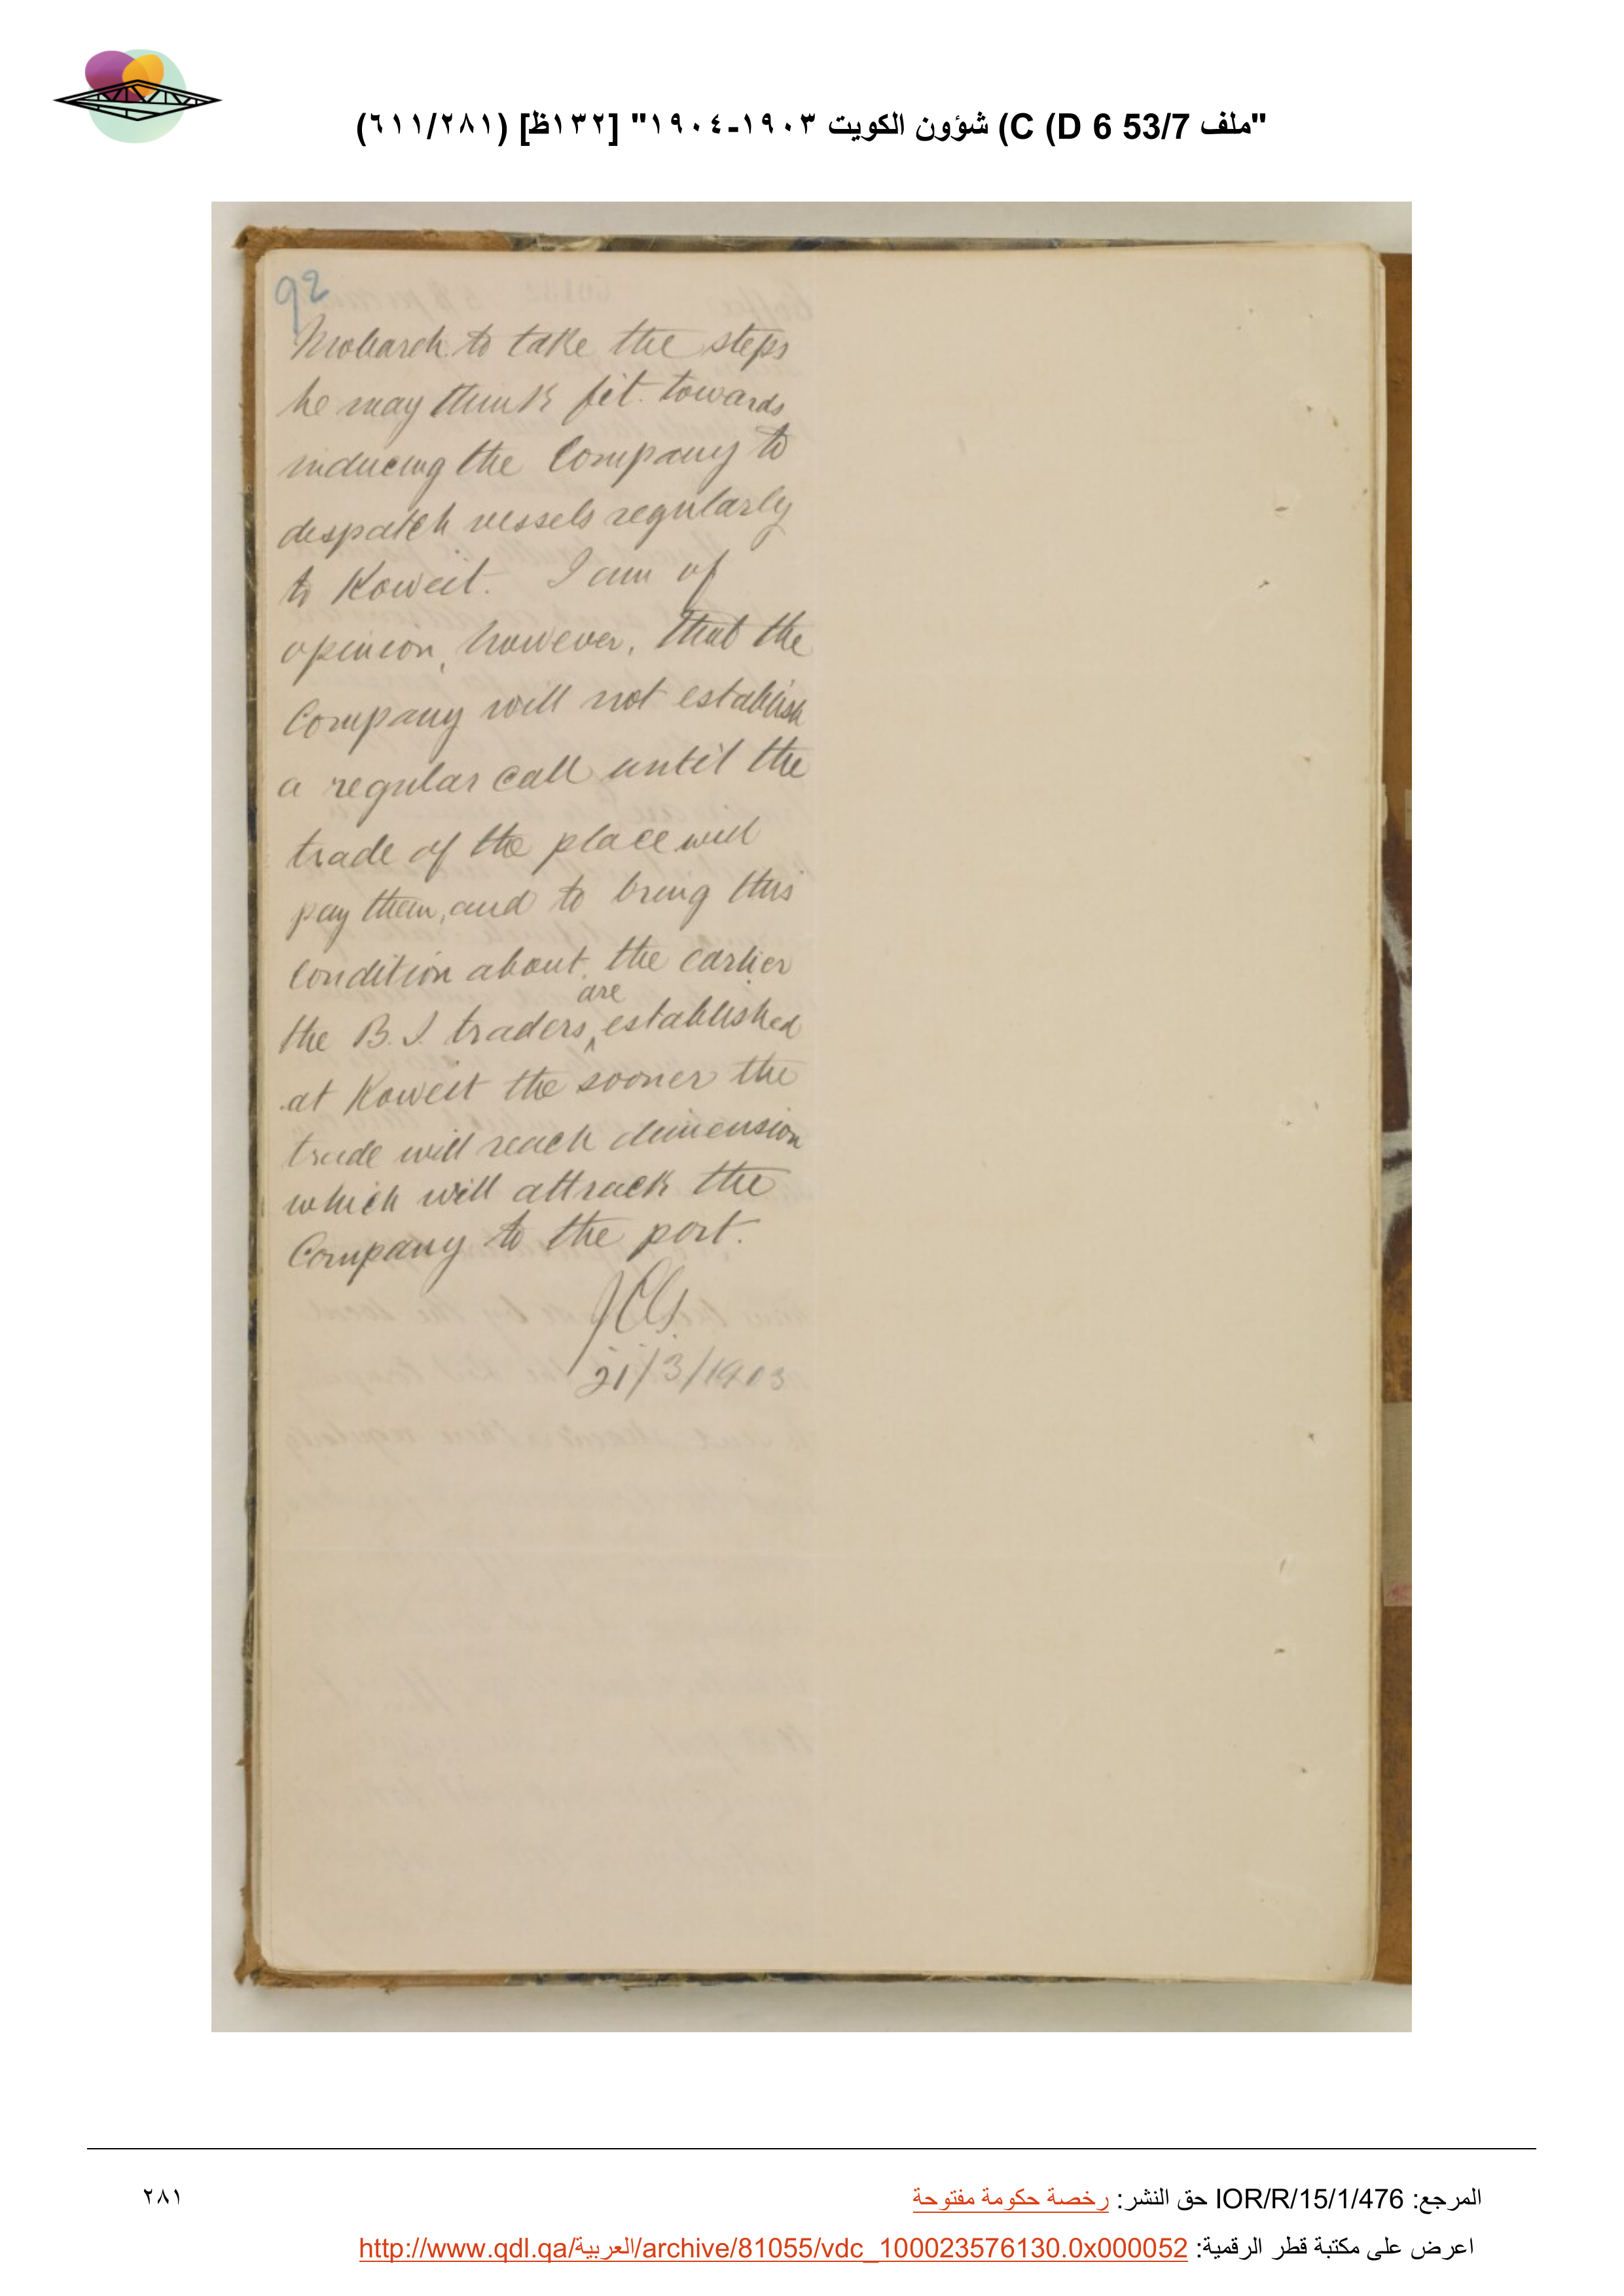 "ملف 53/7 D 6) C) شؤون الكويت ١٩٠٣-١٩٠٤" [١٣٢ظ] (٦١١/٢٨١)
92
Mobarek to take the steps
he may think fit towards
inducing the Company to
despatch vessels regularly
to Koweit. I am of
opinion, however, that the
Company will not establish
a regular call until the
trade of the place will
pay them, and to bring this
condition about the earlier
are
the B. I. traders ^ established
at Koweit the sooner the
trade will reach dimension
which will attrack the
Company to the port.
21/3/1903
المرجع: IOR/R/15/1/476 حق النشر: رخصة حكومة مفتوحة
٢٨١
اعرض على مكتبة قطر الرقمية: http://www.qdl.qa/العربية/archive/81055/vdc_100023576130.0x000052